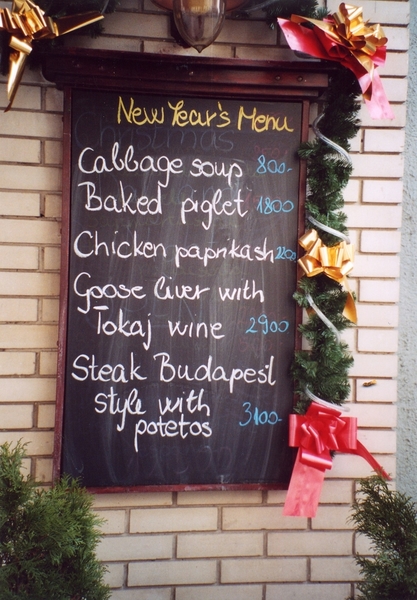 New Year's Menu
Cabbage soup 800-
Baked piglet 1800
Chicken paprikash
Goose liver with
Tokaj wine 2900
Steak Budapest
style with
potetos 3100-